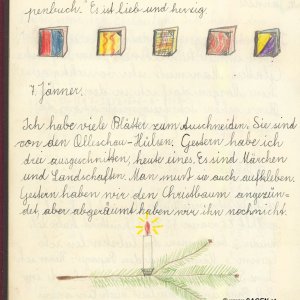 penbuch." Es ist lieb und herzig.
7. Jänner.
Ich habe viele Blätter zum Auschneiden. Sie sind
von den Olleschau-Hülsen. Gestern habe ich
drei ausgeschnitten, heute eines. Es sind Märchen
und Landschaften. Man muß sie auch aufkleben.
Gestern haben wir den Christbaum angezün-
det, aber abgeräumt haben wir ihn noch nicht.